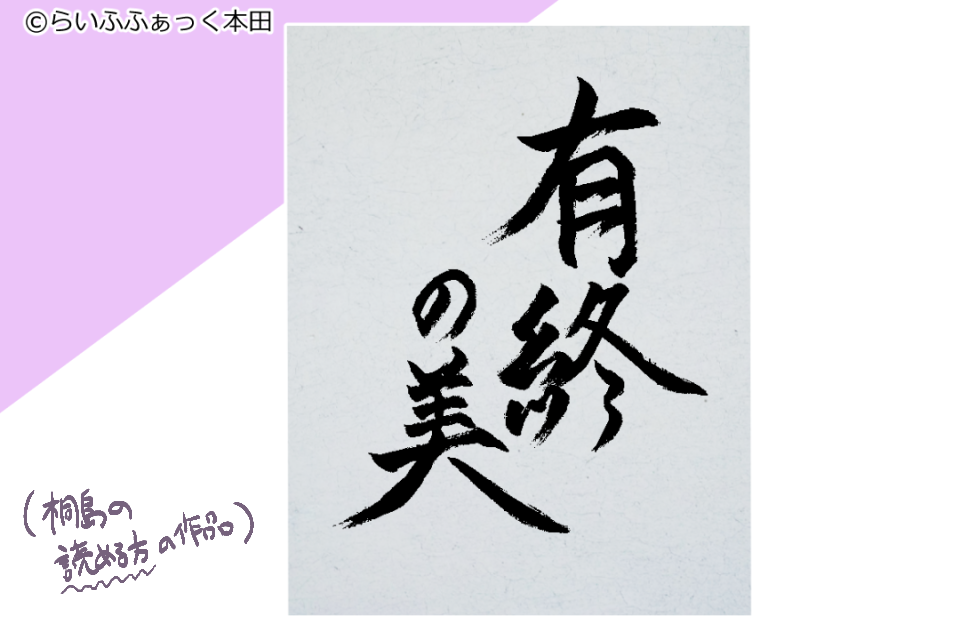 ©らいふふぁっく本田
有終
の美
(桐島の
読める方の作品)